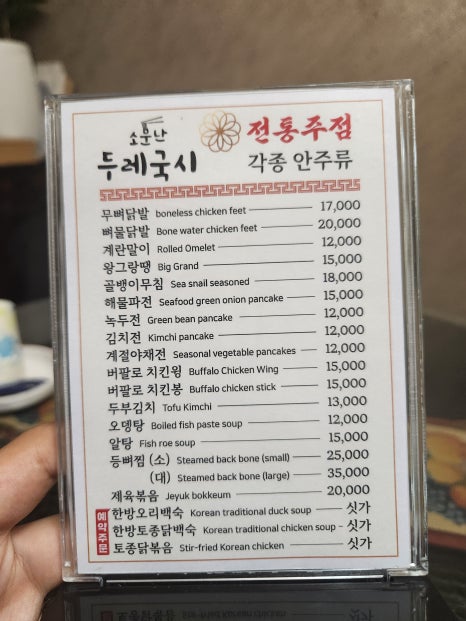 소문난
두레국시
전통주점
각종 안주류
무뼈닭발 boneless chicken feet 17,000
뼈물닭발 Bone water chicken feet 20,000
계란말이 Rolled Omelet 12,000
왕그랑땡 Big Grand 15,000
골뱅이무침 Sea snail seasoned 18,000
해물파전 Seafood green onion pancake 15,000
녹두전 Green bean pancake 12,000
김치전 Kimchi pancake 12,000
계절야채전 Seasonal vegetable pancakes 12,000
버팔로 치킨윙 Buffalo Chicken Wing 15,000
버팔로 치킨봉 Buffalo chicken stick 15,000
두부김치 Tofu Kimchi 13,000
오뎅탕 Boiled fish paste soup 12,000
알탕 Fish roe soup 15,000
등뼈찜 (소) Steamed back bone (small) 25,000
(대) Steamed back bone (large) 35,000
제육볶음 Jeyuk bokkeum 20,000
예약주문
한방오리백숙 Korean traditional duck soup 싯가
한방토종닭백숙 Korean traditional chicken soup 싯가
토종닭볶음 Stir-fried Korean chicken 싯가